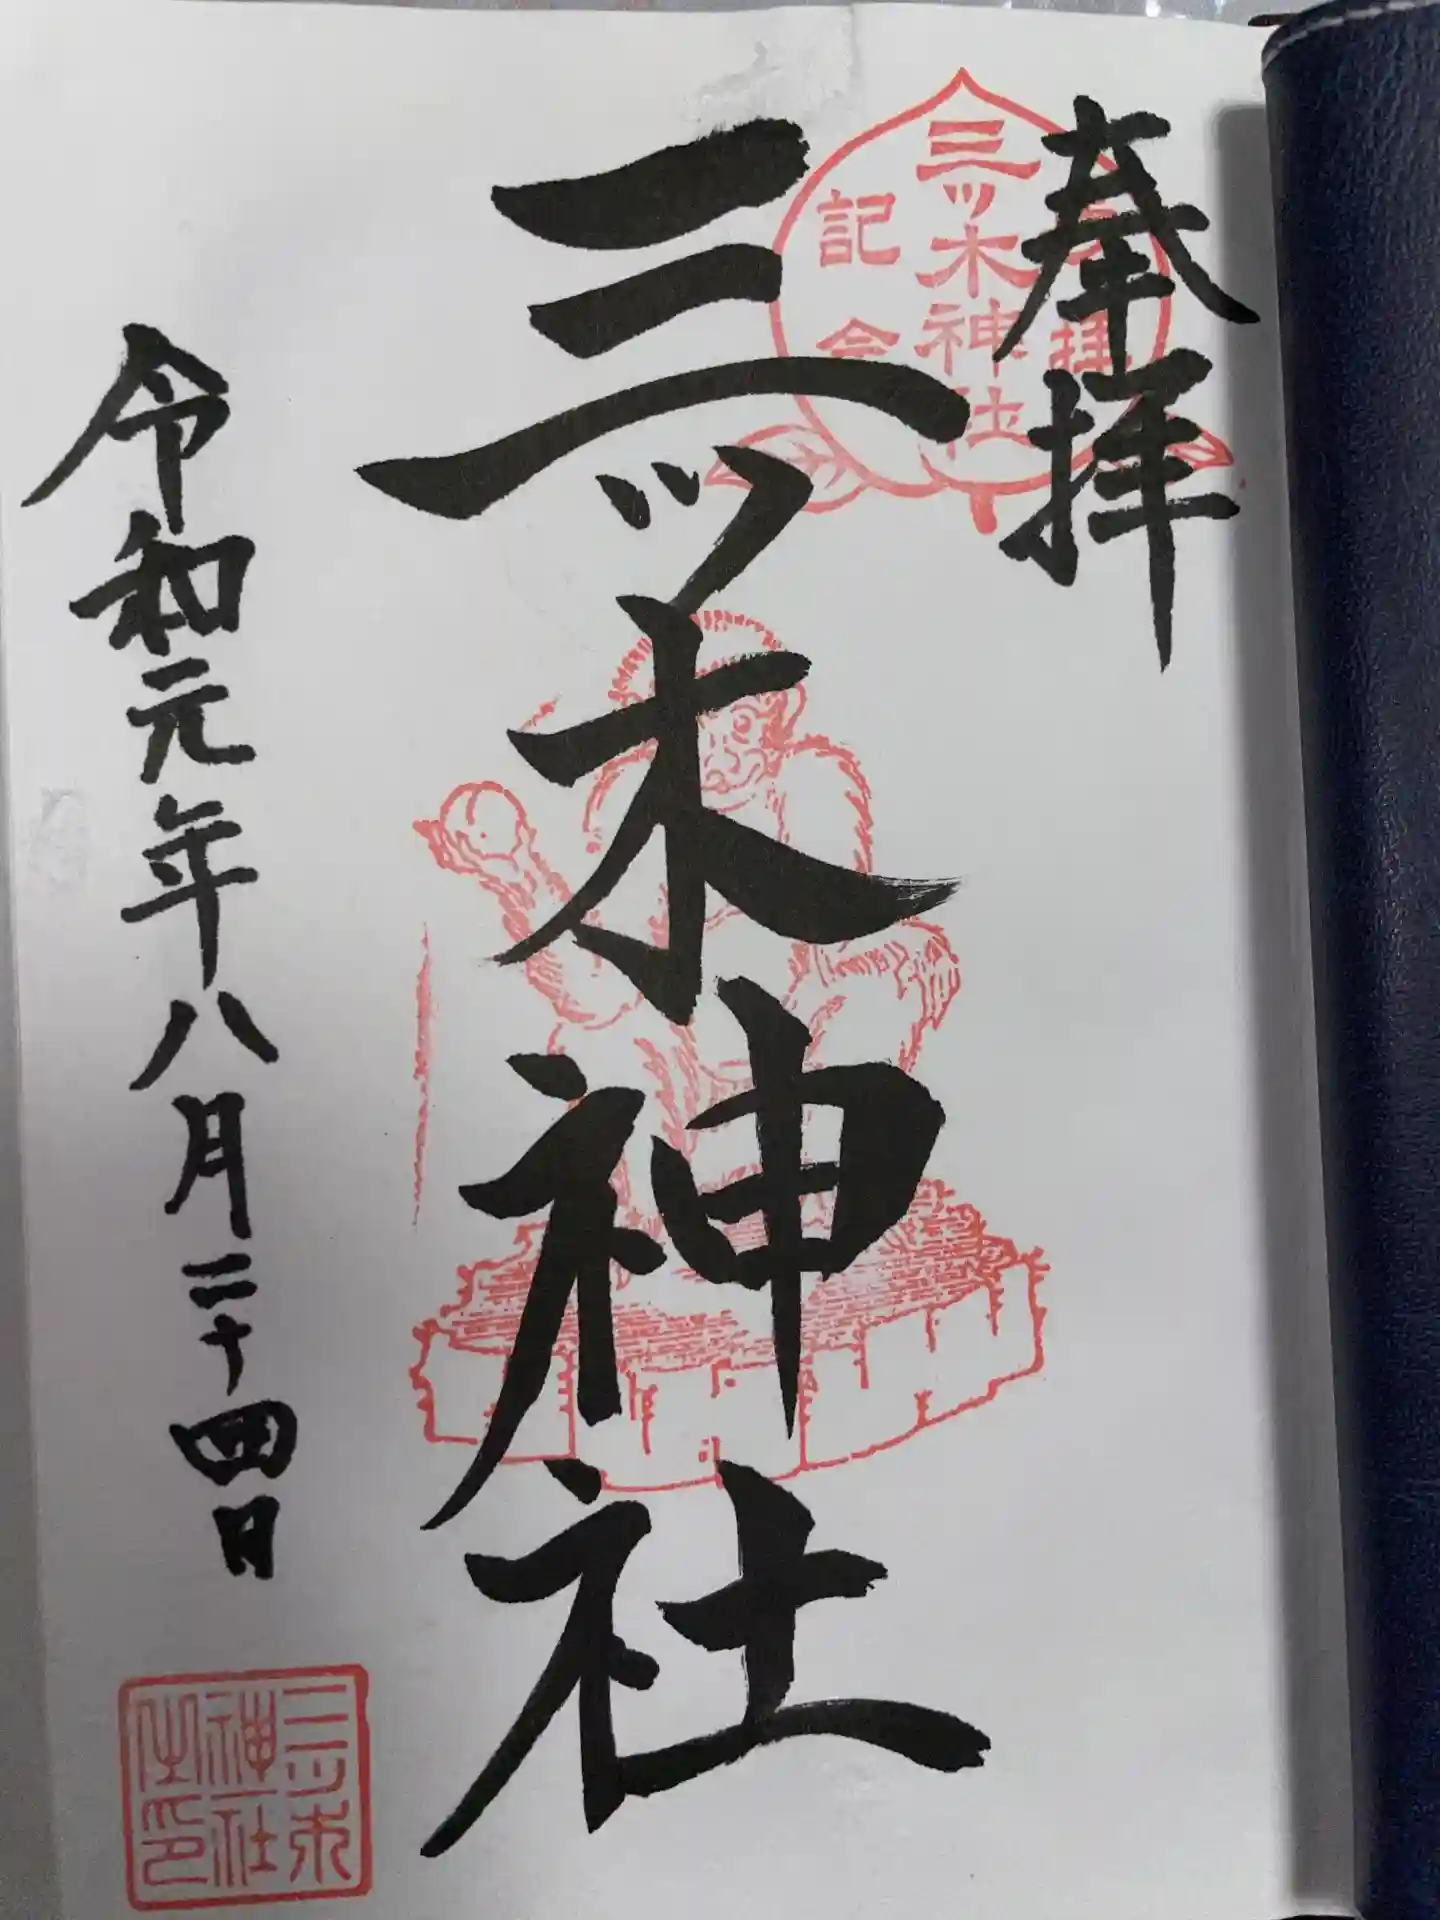 奉拝
三ッ木神社
記念
三ッ木神社
令和元年八月二十四日
三ツ木
神社
之印